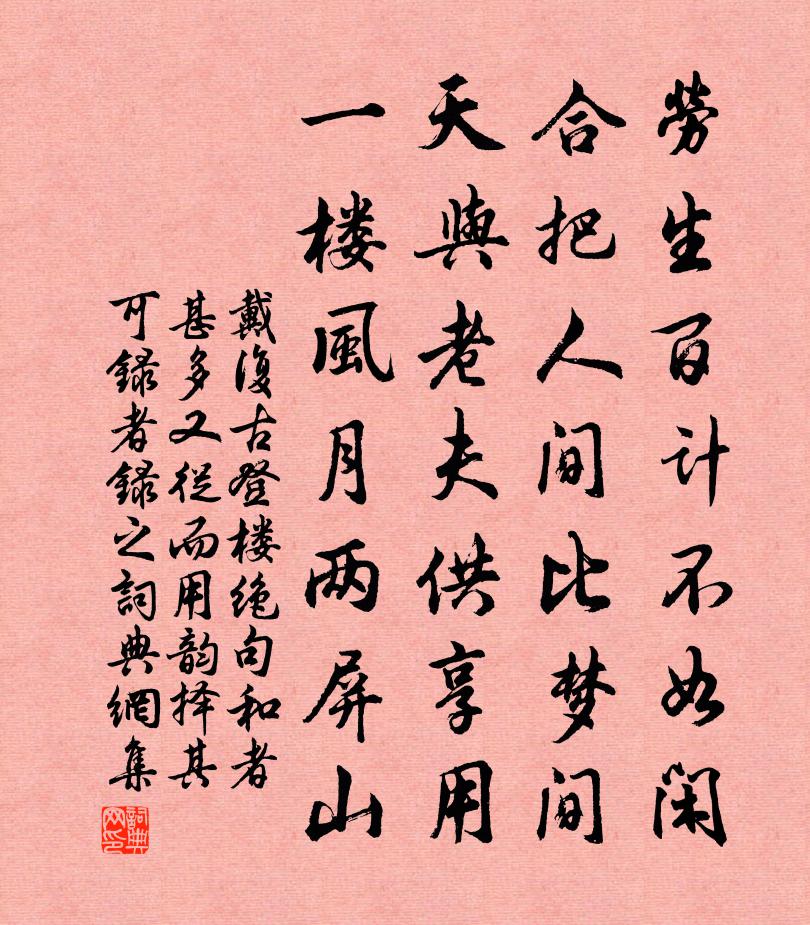 勞生百计不如闲
合把人间比梦间
天與老夫供享用
一楼風月两屏山
戴復古登楼绝句和者
甚多又從而用韵择其
可録者録之詞典網集
詞典网印